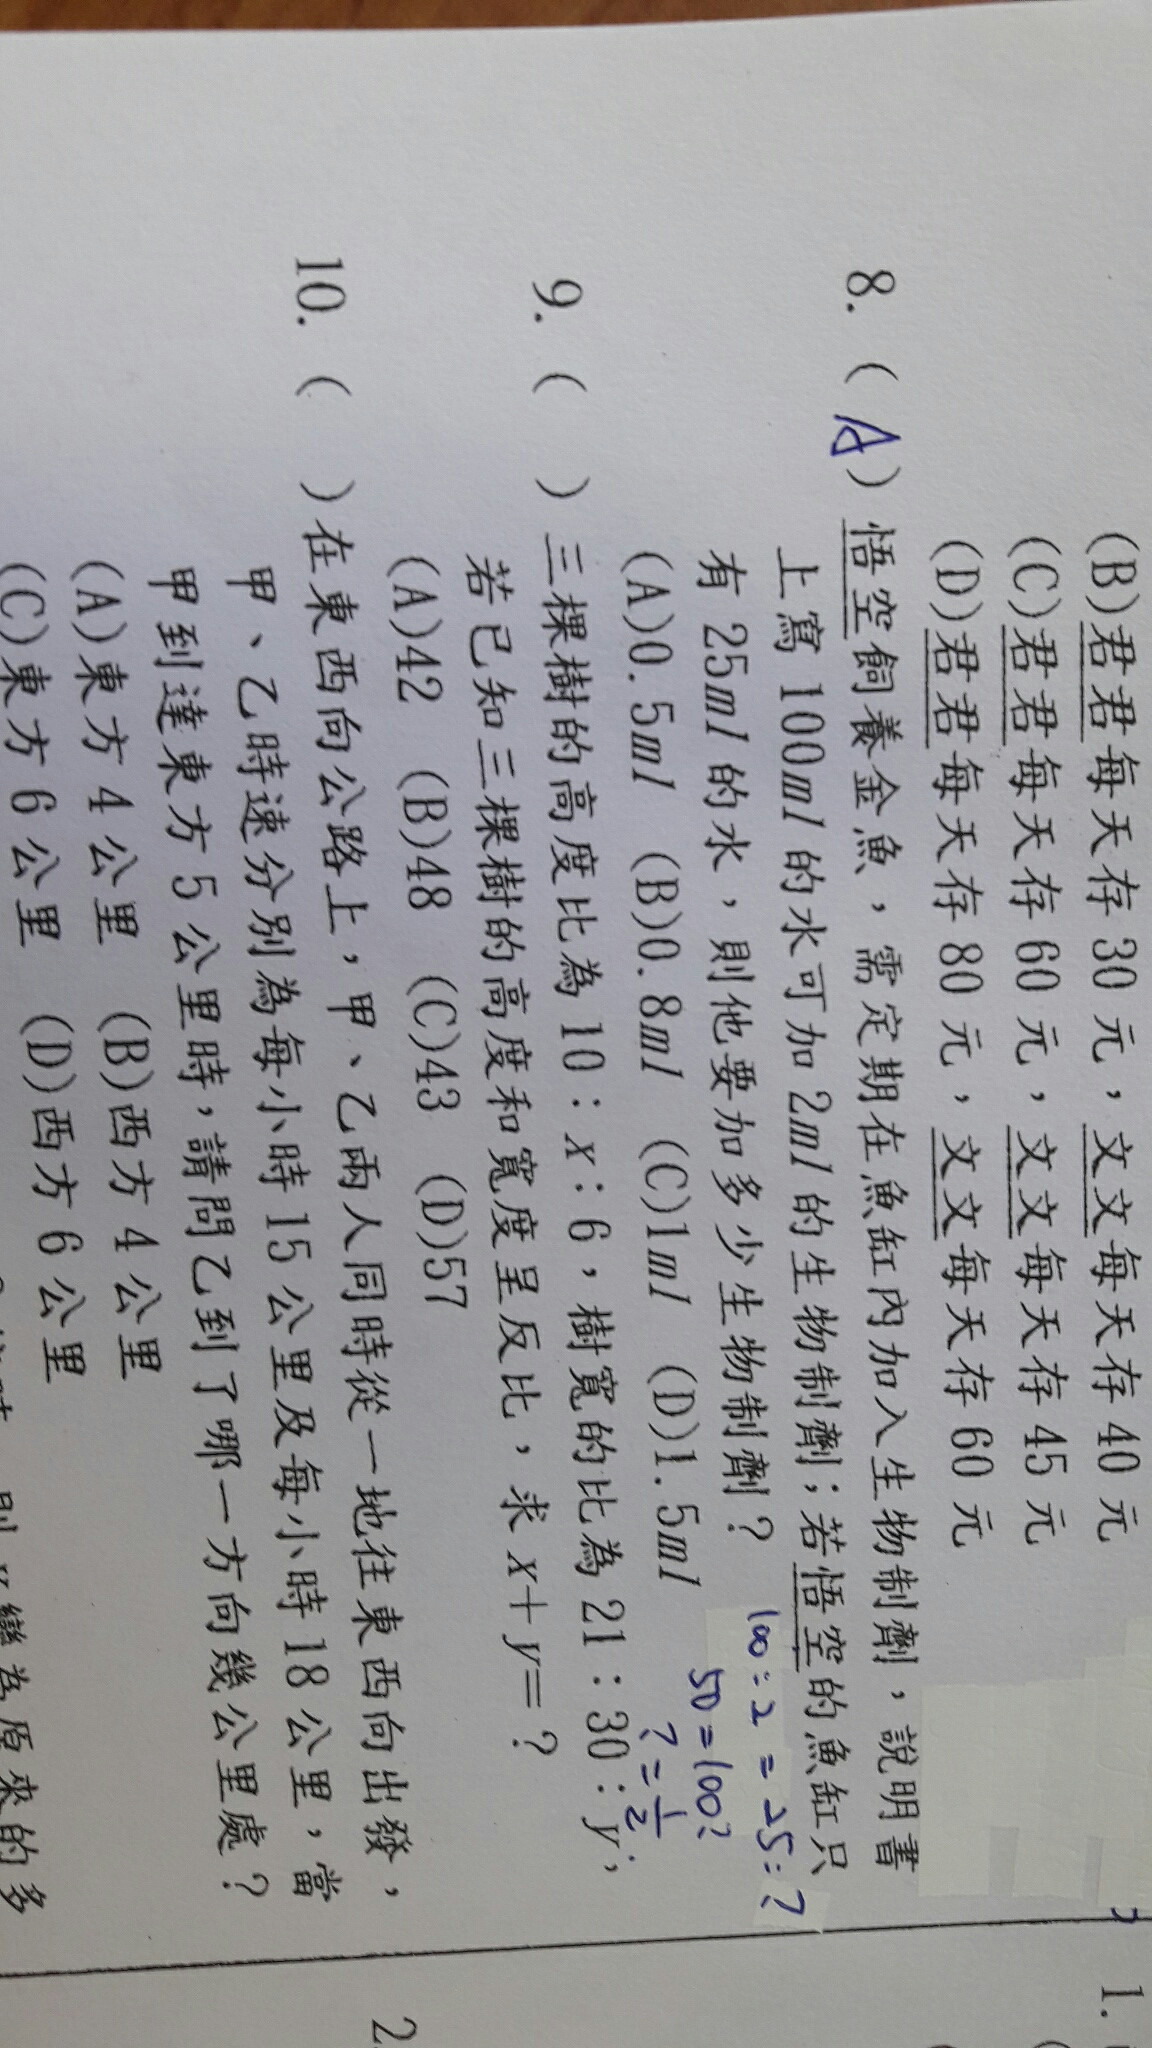 (B)君君每天存 30 元，文文每天存 40 元
(C)君君每天存 60 元，文文每天存 45 元
(D)君君每天存 80 元，文文每天存 60 元
8. ( A )悟空飼養金魚，需定期在魚缸內加入生物制劑，說明書
上寫 100ml 的水可加 2ml 的生物制劑；若悟空的魚缸只
有 25ml 的水，則他要加多少生物制劑？
(A)0.5ml (B)0.8ml (C)1ml (D)1.5ml
100:2=25:?
50=100?
?=1/2
9. ( )三棵樹的高度比為 10：x：6，樹寬的比為 21：30：y，
若已知三棵樹的高度和寬度呈反比，求 x＋y＝？
(A)42 (B)48 (C)43 (D)57
10. ( )在東西向公路上，甲、乙兩人同時從一地往東西向出發，
甲、乙時速分別為每小時 15 公里及每小時 18 公里，當
甲到達東方 5 公里時，請問乙到了哪一方向幾公里處？
(A)東方 4 公里 (B)西方 4 公里
(C)東方 6 公里 (D)西方 6 公里
變為原來的多
1.
2